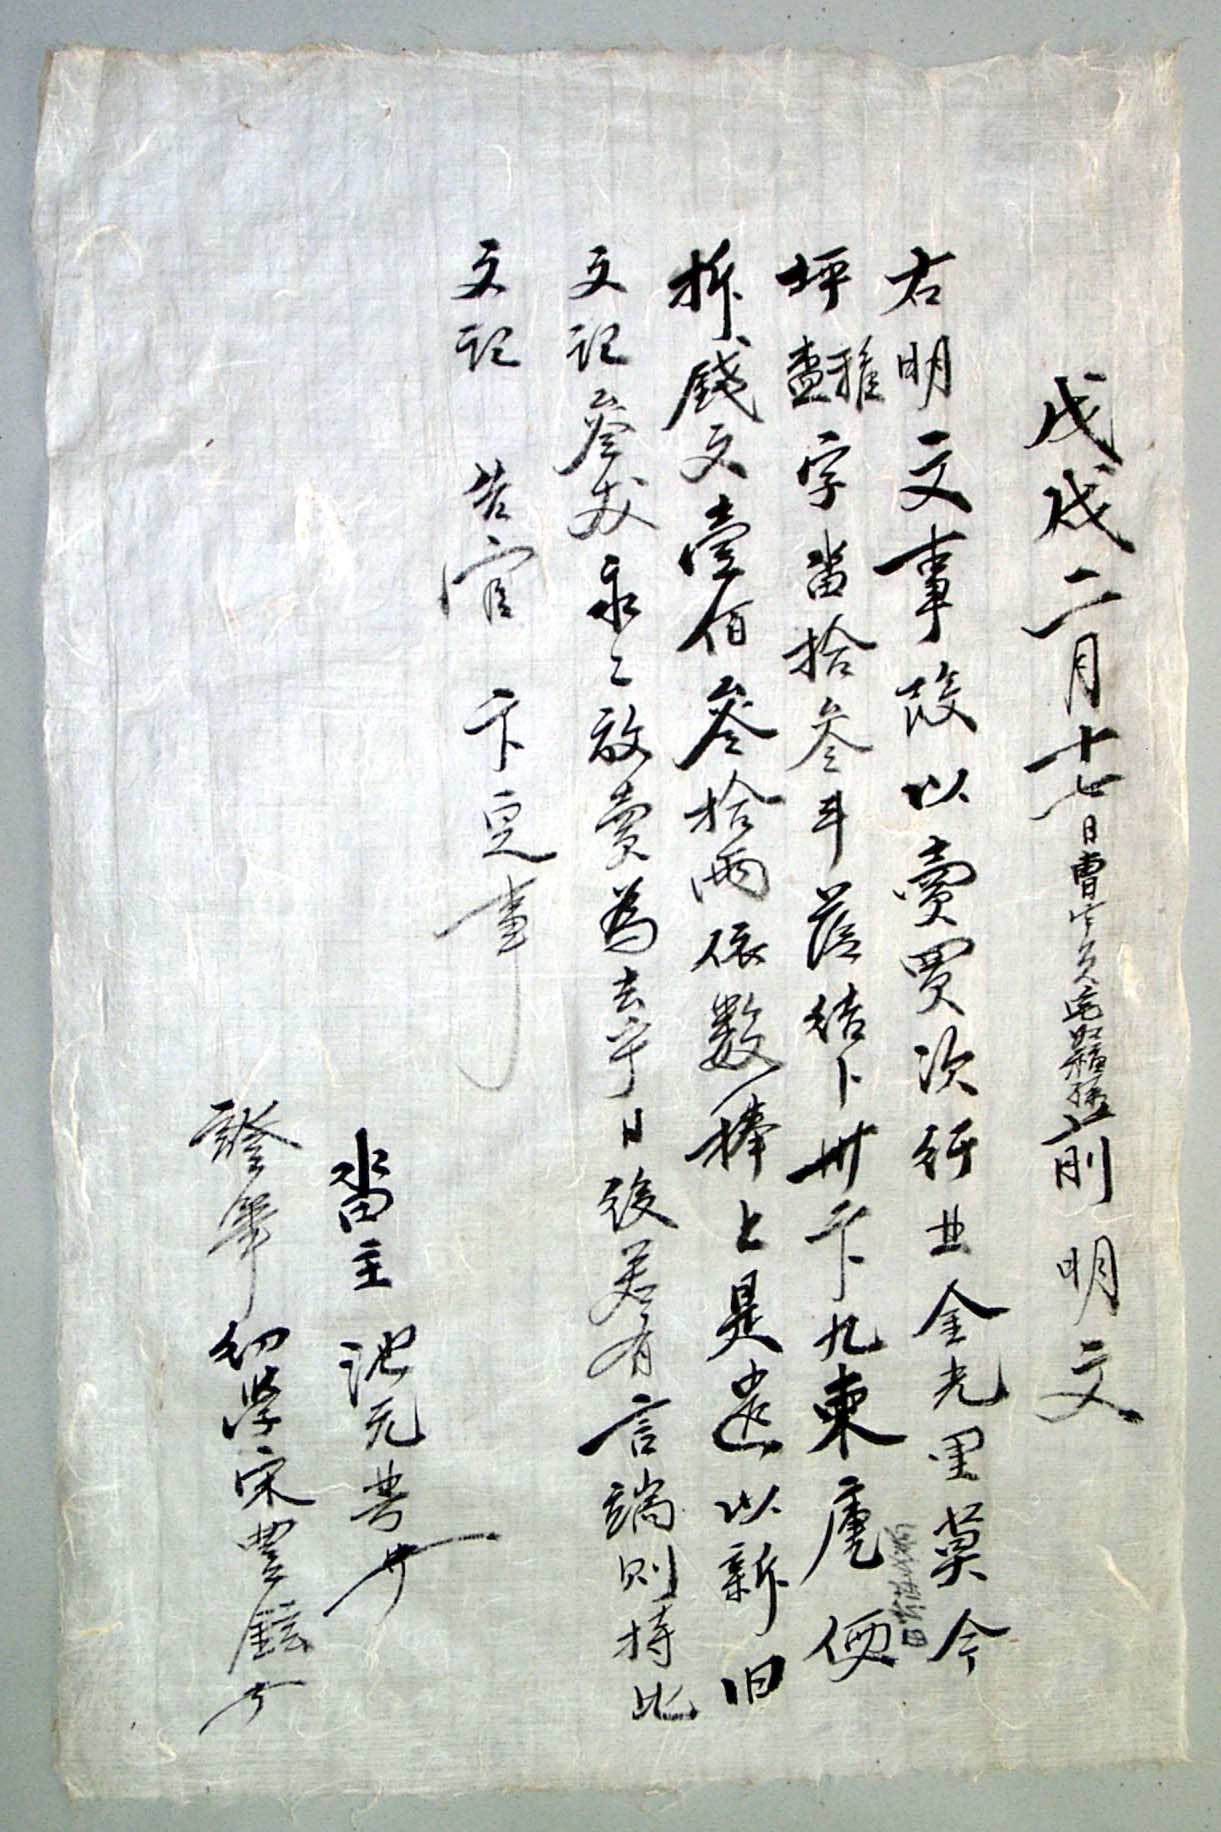 戊戌二月十七日曺生員宅奴 前明文
右明文事段以賣買次 金光里莫今
坪 雅字畓拾叄斗落結卜卅卜九束庫 価
折錢文壹佰叄拾兩依數捧上是遣以新旧
文記叄丈永〻放賣爲去乎日後若有言端則持此
文記 告官卞正事
畓主 池元
證筆 幼學宋豊鉉